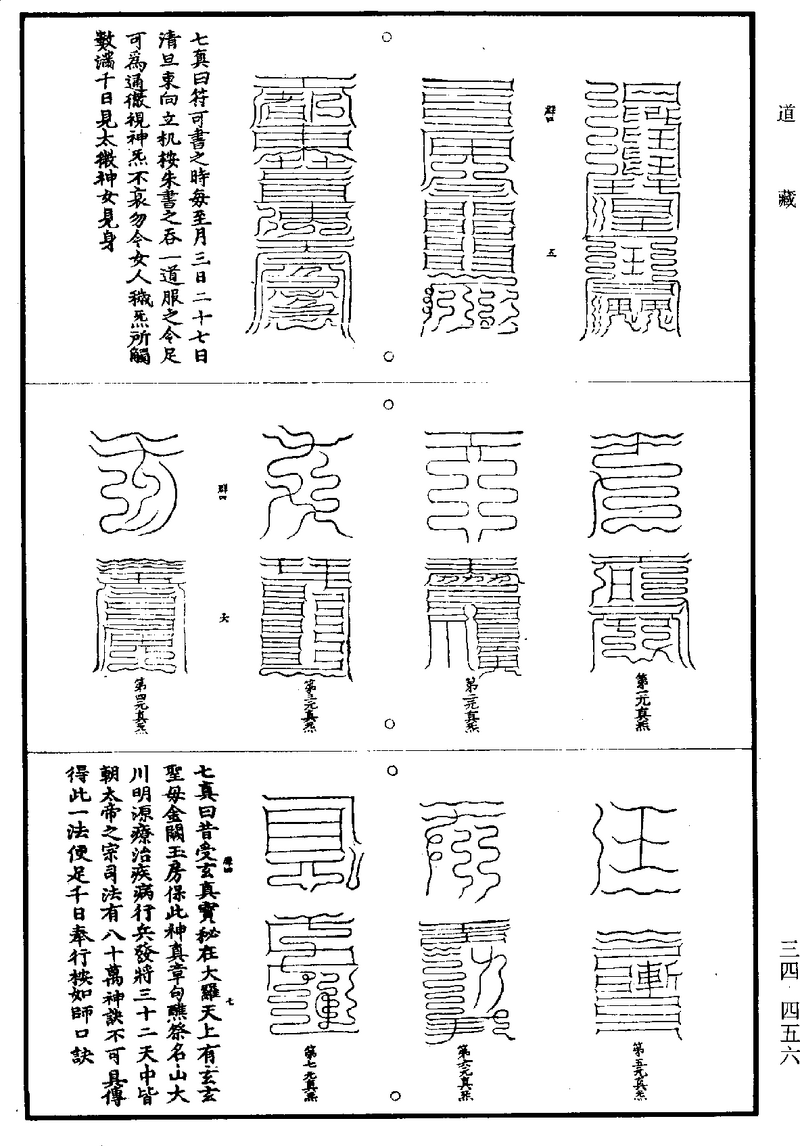 道藏
七真曰符可書之時每至月三日二十七日
清旦東向立机桉朱書之吞一道服之令足
可爲通徹視神炁不哀勿令女人穢炁所觸
數滿千日見太微神女見身
五
第一元真炁
第二元真炁
第三元真炁
第四元真炁
六
第五元真炁
第六元真炁
第七元真炁
七真曰昔受玄真寶秘在大羅天上有玄玄
聖母金闕玉房保此神真章句醮祭名山大
川明源療治疾病行兵發將三十二天中皆
朝太帝之宗司法有八十萬神訣不可具傳
得此一法便足千日奉行桉如師口訣
七
三四 四五六